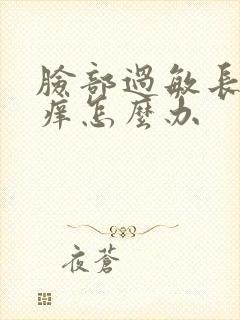 臉部過敏長
痒怎麼办
夜蒼